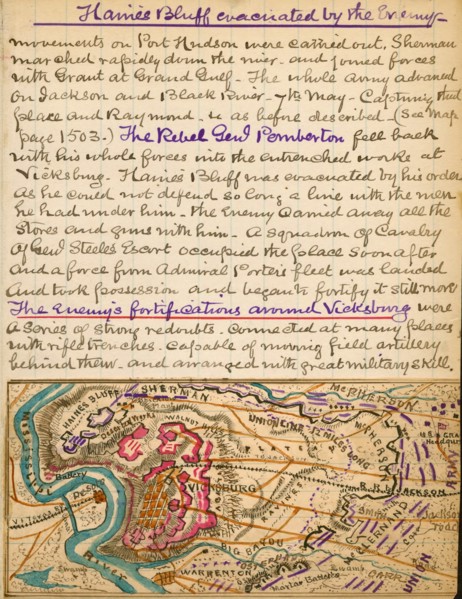 Haines Bluff evacuated by the Enemy-
movements on Port Hudson were carried out. Sherman
marched rapidly down the river- and joined forces
with Grant at Grand Gulf- The whole army advanced
on Jackson and Black River- 7th May- Capturing that
place and Raymond- as before described- (See Map
page 1503.) The Rebel Genl Pemberton fell back
with his whole forces into the entrenched works at
Vicksburg- Haines Bluff was evacuated by his order
as he could not defend so long a line with the men
he had under him- the Enemy carried away all the
Stores and guns with him- A squadron of Cavalry
of Genl Steeles Escort occupied the place soon after
and a force from Admiral Porters fleet was landed
and took possession and began to fortify it still more
The Enemy's fortifications around Vicksburg were
a series of strong redoubts. connected at many places
with rifle trenches. capable of moving field artillery
behind them- and arranged with great military skill.
HAINES BLUFF
SHERMAN
McPHERSON
WALNUT HILLS
UNION LINE 12 MILES LONG
McPHERSON
MISSISSIPPI
Battery
DeSoto
VICKSBURG
JACKSON
ARMY
Smith
Jackson
road
McCLERNAND
BIG BAYOU
River
Swamp
WARRENTON
Mortar Batteries
Swamp
CARR
UNION